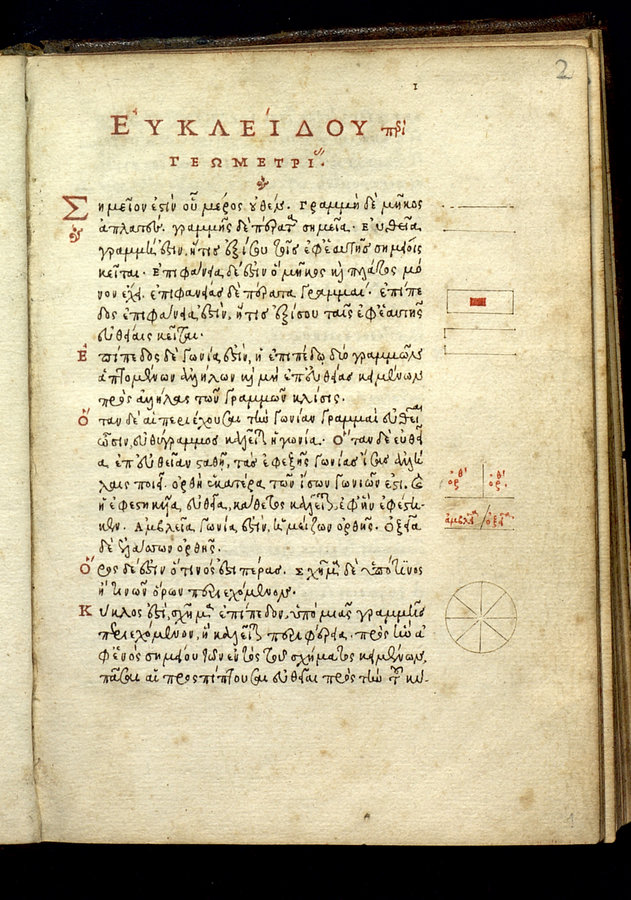 2
1
ΕΥΚΛΕΊΔΟΥ περὶ
ΓΕΩΜΕΤΡΙ
Σημεῖον ἐστὶν οὗ μέρος οὐθέν. Γραμμὴ δὲ μῆκος
ἀπλατές. γραμμῆς δὲ πέρατα σημεῖα. Εὐθεῖα
γραμμή ἐστιν, ἥτις ἐξίσου τοῖς ἐφ' ἑαυτῆς σημείοις
κεῖται. Ἐπιφάνεια δέ ἐστιν ὃ μῆκος καὶ πλάτος μό
νον ἔχει. ἐπιφανείας δὲ πέρατα γραμμαί. ἐπίπε
δος ἐπιφάνειά ἐστιν, ἥτις ἐξίσου ταῖς ἐφ' ἑαυτῆς
εὐθείαις κεῖται.
Ἐπίπεδος δὲ γωνία ἐστὶν, ἡ ἐν ἐπιπέδῳ δύο γραμμῶν
ἁπτομένων ἀλλήλων καὶ μὴ ἐπ' εὐθείας κειμένων
πρὸς ἀλλήλας τῶν γραμμῶν κλίσις.
Ὅταν δὲ αἱ περιέχουσαι τὴν γωνίαν γραμμαὶ εὐθεῖαι
ὦσιν, εὐθύγραμμος καλεῖται ἡ γωνία. Ὅταν δὲ εὐθεῖ
α ἐπ' εὐθεῖαν σταθῇ, τὰς ἐφεξῆς γωνίας ἴσας ἀλλή
λαις ποιῇ, ὀρθὴ ἑκατέρα τῶν ἴσων γωνιῶν ἐστι, καὶ
ἡ ἐφεστηκυῖα εὐθεῖα, κάθετος καλεῖται ἐφ' ἣν ἐφέστη-
κεν. Ἀμβλεῖα γωνία ἐστὶν, ἡ μείζων ὀρθῆς. Ὀξεῖα
δὲ ἡ ἐλάσσων ὀρθῆς.
Ὅρος δέ ἐστιν ὅ τινός ἐστι πέρας. Σχῆμα δὲ τὸ ὑπό τινος
ἤ τινων ὅρων περιεχόμενον.
Κύκλος ἐστὶ, σχῆμα ἐπίπεδον, ὑπὸ μιᾶς γραμμῆς
περιεχόμενον, ἣ καλεῖται περιφέρεια. πρὸς ἣν ἀ
φ' ἑνὸς σημείου τῶν ἐντὸς τοῦ σχήματος κειμένων,
πᾶσαι αἱ προσπίπτουσαι εὐθεῖαι πρὸς τὴν τοῦ κύ-
ὀρθ ὀρθ
ἀμβλεῖα ὀξεῖα